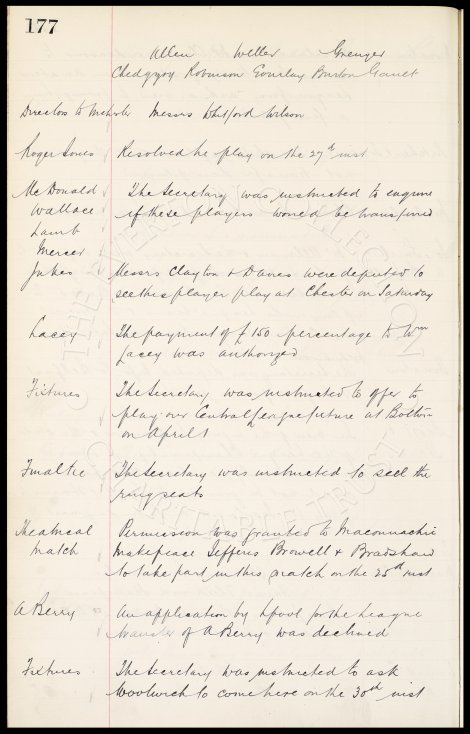 177
Allen Weller Grenyer
Chedgzoy Robinson Gourlay Burton Gault
Directors to Manchester Messrs Whitford Wilson
Roger Jones Resolved he play on the 27th inst
McDonald The Secretary was instructed to enquire
Wallace if these players would be transferred
Lamb
Mercer
Jukes Messrs Clayton & Davies were deputed to
see this player play at Chester on Saturday
Lacey The payment of £150 percentage to Wm
Lacey was authorized
Fixtures The Secretary was instructed to offer to
play our Central League fixture at Bolton
on April 1
Final tie The Secretary was instructed to sell the
ring seats
Theatrical Permission was granted to Maconnachie
match Makepeace Jefferis Browell & Bradshaw
to take part in this match on the 25th inst
A Berry An application by Lpool for the League
transfer of A Berry was declined
Fixtures The Secretary was instructed to ask
Woolwich to come here on the 30th inst
THE EVERTON COLLECTION
CHARITABLE TRUST